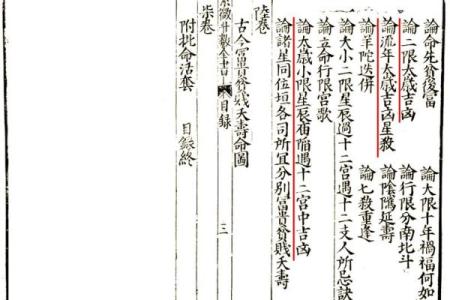 論命先貧後富
論大限十年禍福何如
論二限太歲吉凶
論行限分南北斗
論流年太歲吉凶星殺
論陰騭延壽
論羊陀迭併
論七殺重逢
論大小二限星辰過十二宮遇十二支人所忌訣
論立命行限宮歌
論太歲小限星辰廟陷遇十二宮中吉凶
論諸星同位垣各司所宜分別富貴貧賤夭壽
陸卷
古今富貴貧賤夭壽命圖
微斗數全書 目錄 三
柒卷
附批命活套 目錄終